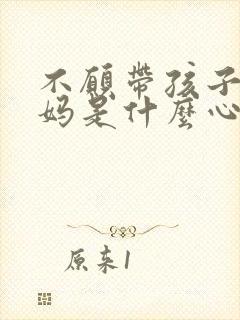 不願帶孩子
妈是什麼心
原来1